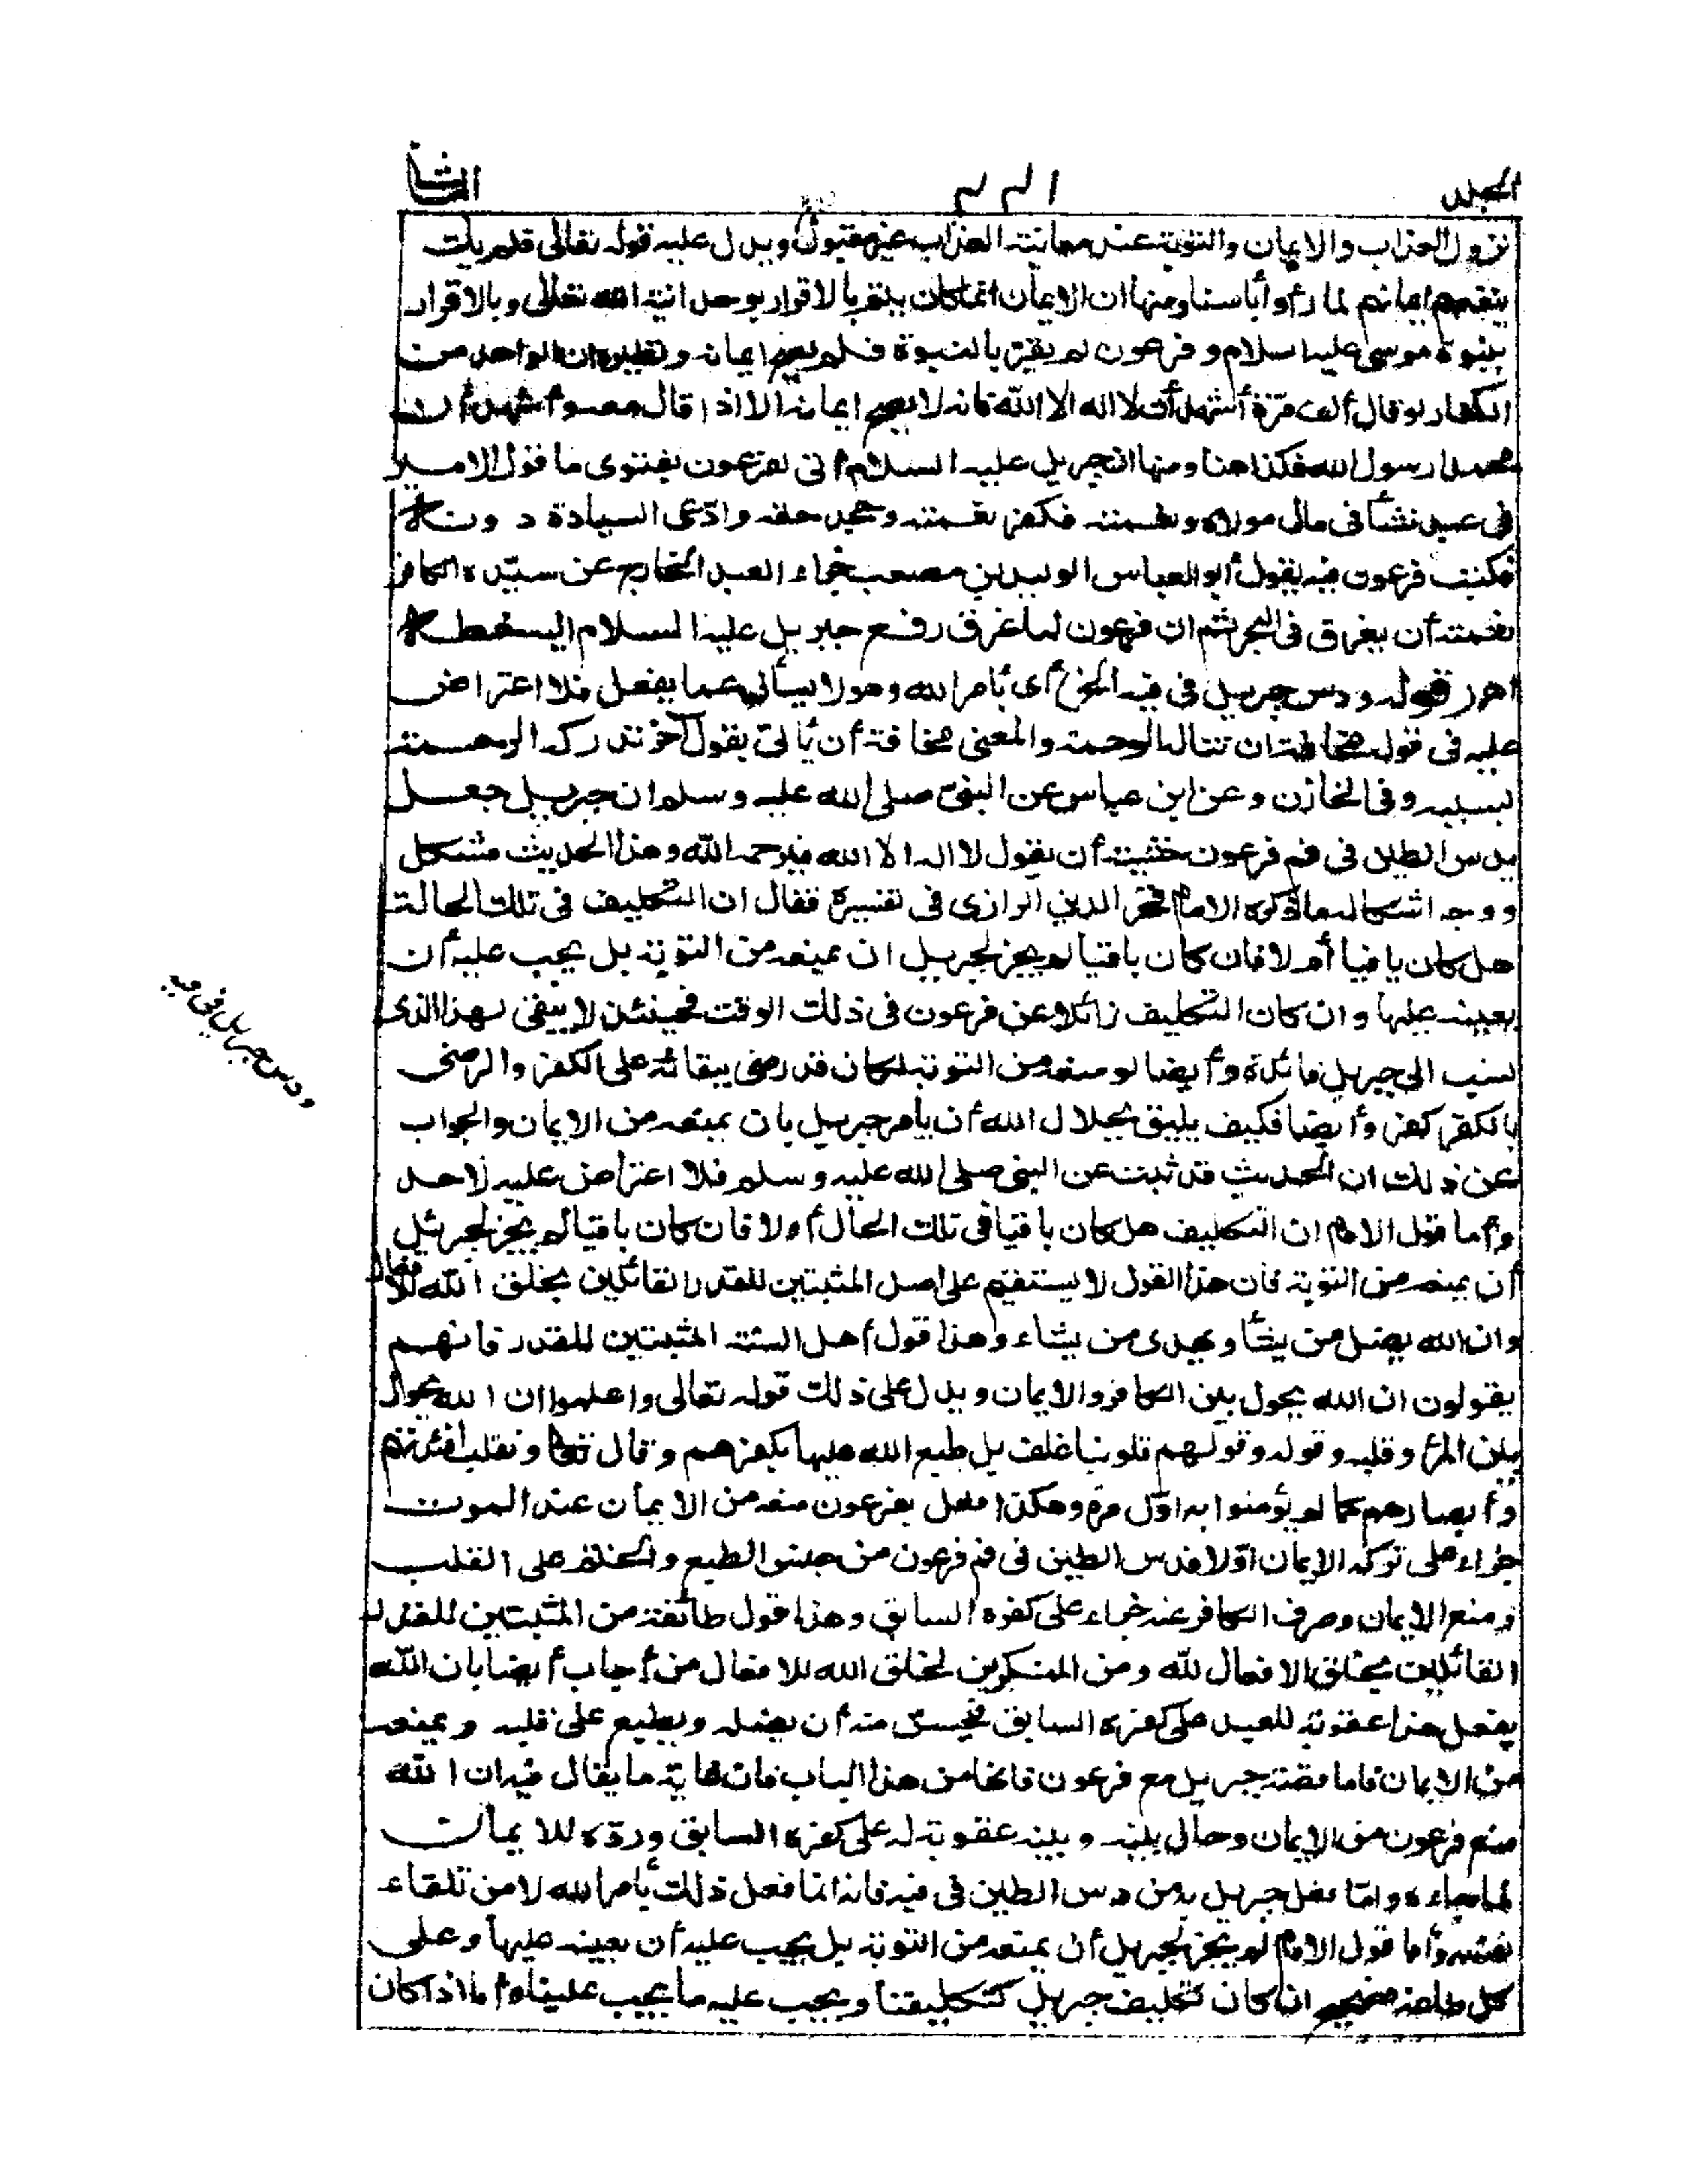 المجلد الثاني
نزول العذاب والايمان والتوبة عند معاينة العذاب غير مقبول ويدل عليه قوله تعالى فلم يك
ينفعهم ايمانهم لما رأوا بأسنا ومنها ان الايمان انما كان يتم بالاقرار بوحدانية الله تعالى وبالاقرار
بنبوة موسى عليه السلام وفرعون لم يقر بالنبوة فلم يصح ايمانه ونظيره ان الواحد من
الكفار لو قال ألف مرة أشهد أن لا اله الا الله فانه لا يصح ايمانه الا اذا قال معه وأشهد أن
محمدا رسول الله فكذا هنا ومنها ان جبريل عليه السلام أتى لفرعون بفتوى ما قول الامير
فى عبد نشأ فى مال مولاه ونعمته فكفر نعمته وجحد حقه وادّعى السيادة دونه
فكتب فرعون فيه يقول أبو العباس الوليد بن مصعب جزاء العبد الخارج عن سيّده الكافر
نعمته أن يغرق فى البحر ثم ان فرعون لما غرق رفع جبريل عليه السلام اليه خطه
اهـ قوله ودس جبريل فى فيه الخ أى بأمر الله وهو لا يسأل عما يفعل فلا اعتراض
عليه فى قوله مخافة ان تناله الرحمة والمعنى مخافة أن يأتى بقول آخر تدركه الرحمة
بسببه وفى الخازن وعن ابن عباس عن النبى صلى الله عليه وسلم ان جبريل جعل
يدس الطين فى فم فرعون خشية أن يقول لا اله الا الله فيرحمه الله وهذا الحديث مشكل
ووجه اشكاله ما ذكره الامام فخر الدين الرازى فى تفسيره فقال ان التكليف فى تلك الحالة
هل كان باقيا أم لا فان كان باقيا لم يجز لجبريل ان يمنعه من التوبة بل يجب عليه أن
يعينه عليها وان كان التكليف زائلا عن فرعون فى ذلك الوقت فحينئذ لا يبقى لهذا الذى
نسب الى جبريل فائدة وأيضا لو منعه من التوبة لكان قد رضى ببقائه على الكفر والرضى
بالكفر كفر وأيضا فكيف يليق بجلال الله أن يأمر جبريل بان يمنعه من الايمان والجواب
عن ذلك ان الحديث قد ثبت عن النبى صلى الله عليه وسلم فلا اعتراض عليه لاحد
وأما قول الامام ان التكليف هل كان باقيا فى تلك الحال أولا فان كان باقيا لم يجز لجبرئيل
أن يمنعه من التوبة فان هذا القول لا يستقيم على اصل المثبتين للقدر القائلين بخلق الله للافعال
وان الله يضل من يشأ ويهدى من يشاء وهذا قول أهل السنة المثبتين للقدر فانهم
يقولون ان الله يحول بين الكافر والايمان ويدل على ذلك قوله تعالى واعلموا ان الله يحول
بين المرء وقلبه وقوله وقولهم قلوبنا غلف بل طبع الله عليها بكفرهم وقال تعالى ونقلب أفئدتهم
وأبصارهم كما لم يؤمنوا به اوّل مرة وهكذا فعل بفرعون منعه من الايمان عند الموت
جزاء على تركه الايمان اوّلا فدس الطين فى فم فرعون من جنس الطبع والختم على القلب
ومنع الايمان وصرف الكافر عنه جزاء على كفره السابق وهذا قول طائفة من المثبتين للقدر
القائلين بخلق الافعال لله ومن المنكرين لخلق الله للافعال من أجاب أيضا بان الله
يفعل هذا عقوبة للعبد على كفره السابق فيحسن منه أن يضله ويطبع على قلبه ويمنعه
من الايمان فاما قصة جبريل مع فرعون فانها من هذا الباب فان غاية ما يقال فيه ان الله
منع فرعون من الايمان وحال بينه وبينه عقوبة له على كفره السابق وردّه للايمان
لما جاءه وامّا فعل جبريل به من دس الطين فى فيه فانه انما فعل ذلك بأمر الله لا من تلقاء
نفسه وأما قول الامام لم يجز لجبريل أن يمنعه من التوبة بل يجب عليه أن يعينه عليها وعلى
كل طاعة فصحيح ان كان تكليف جبريل كتكليفنا ويجب عليه ما يجب علينا وأما اذا كان
ودس جبريل فى فيه